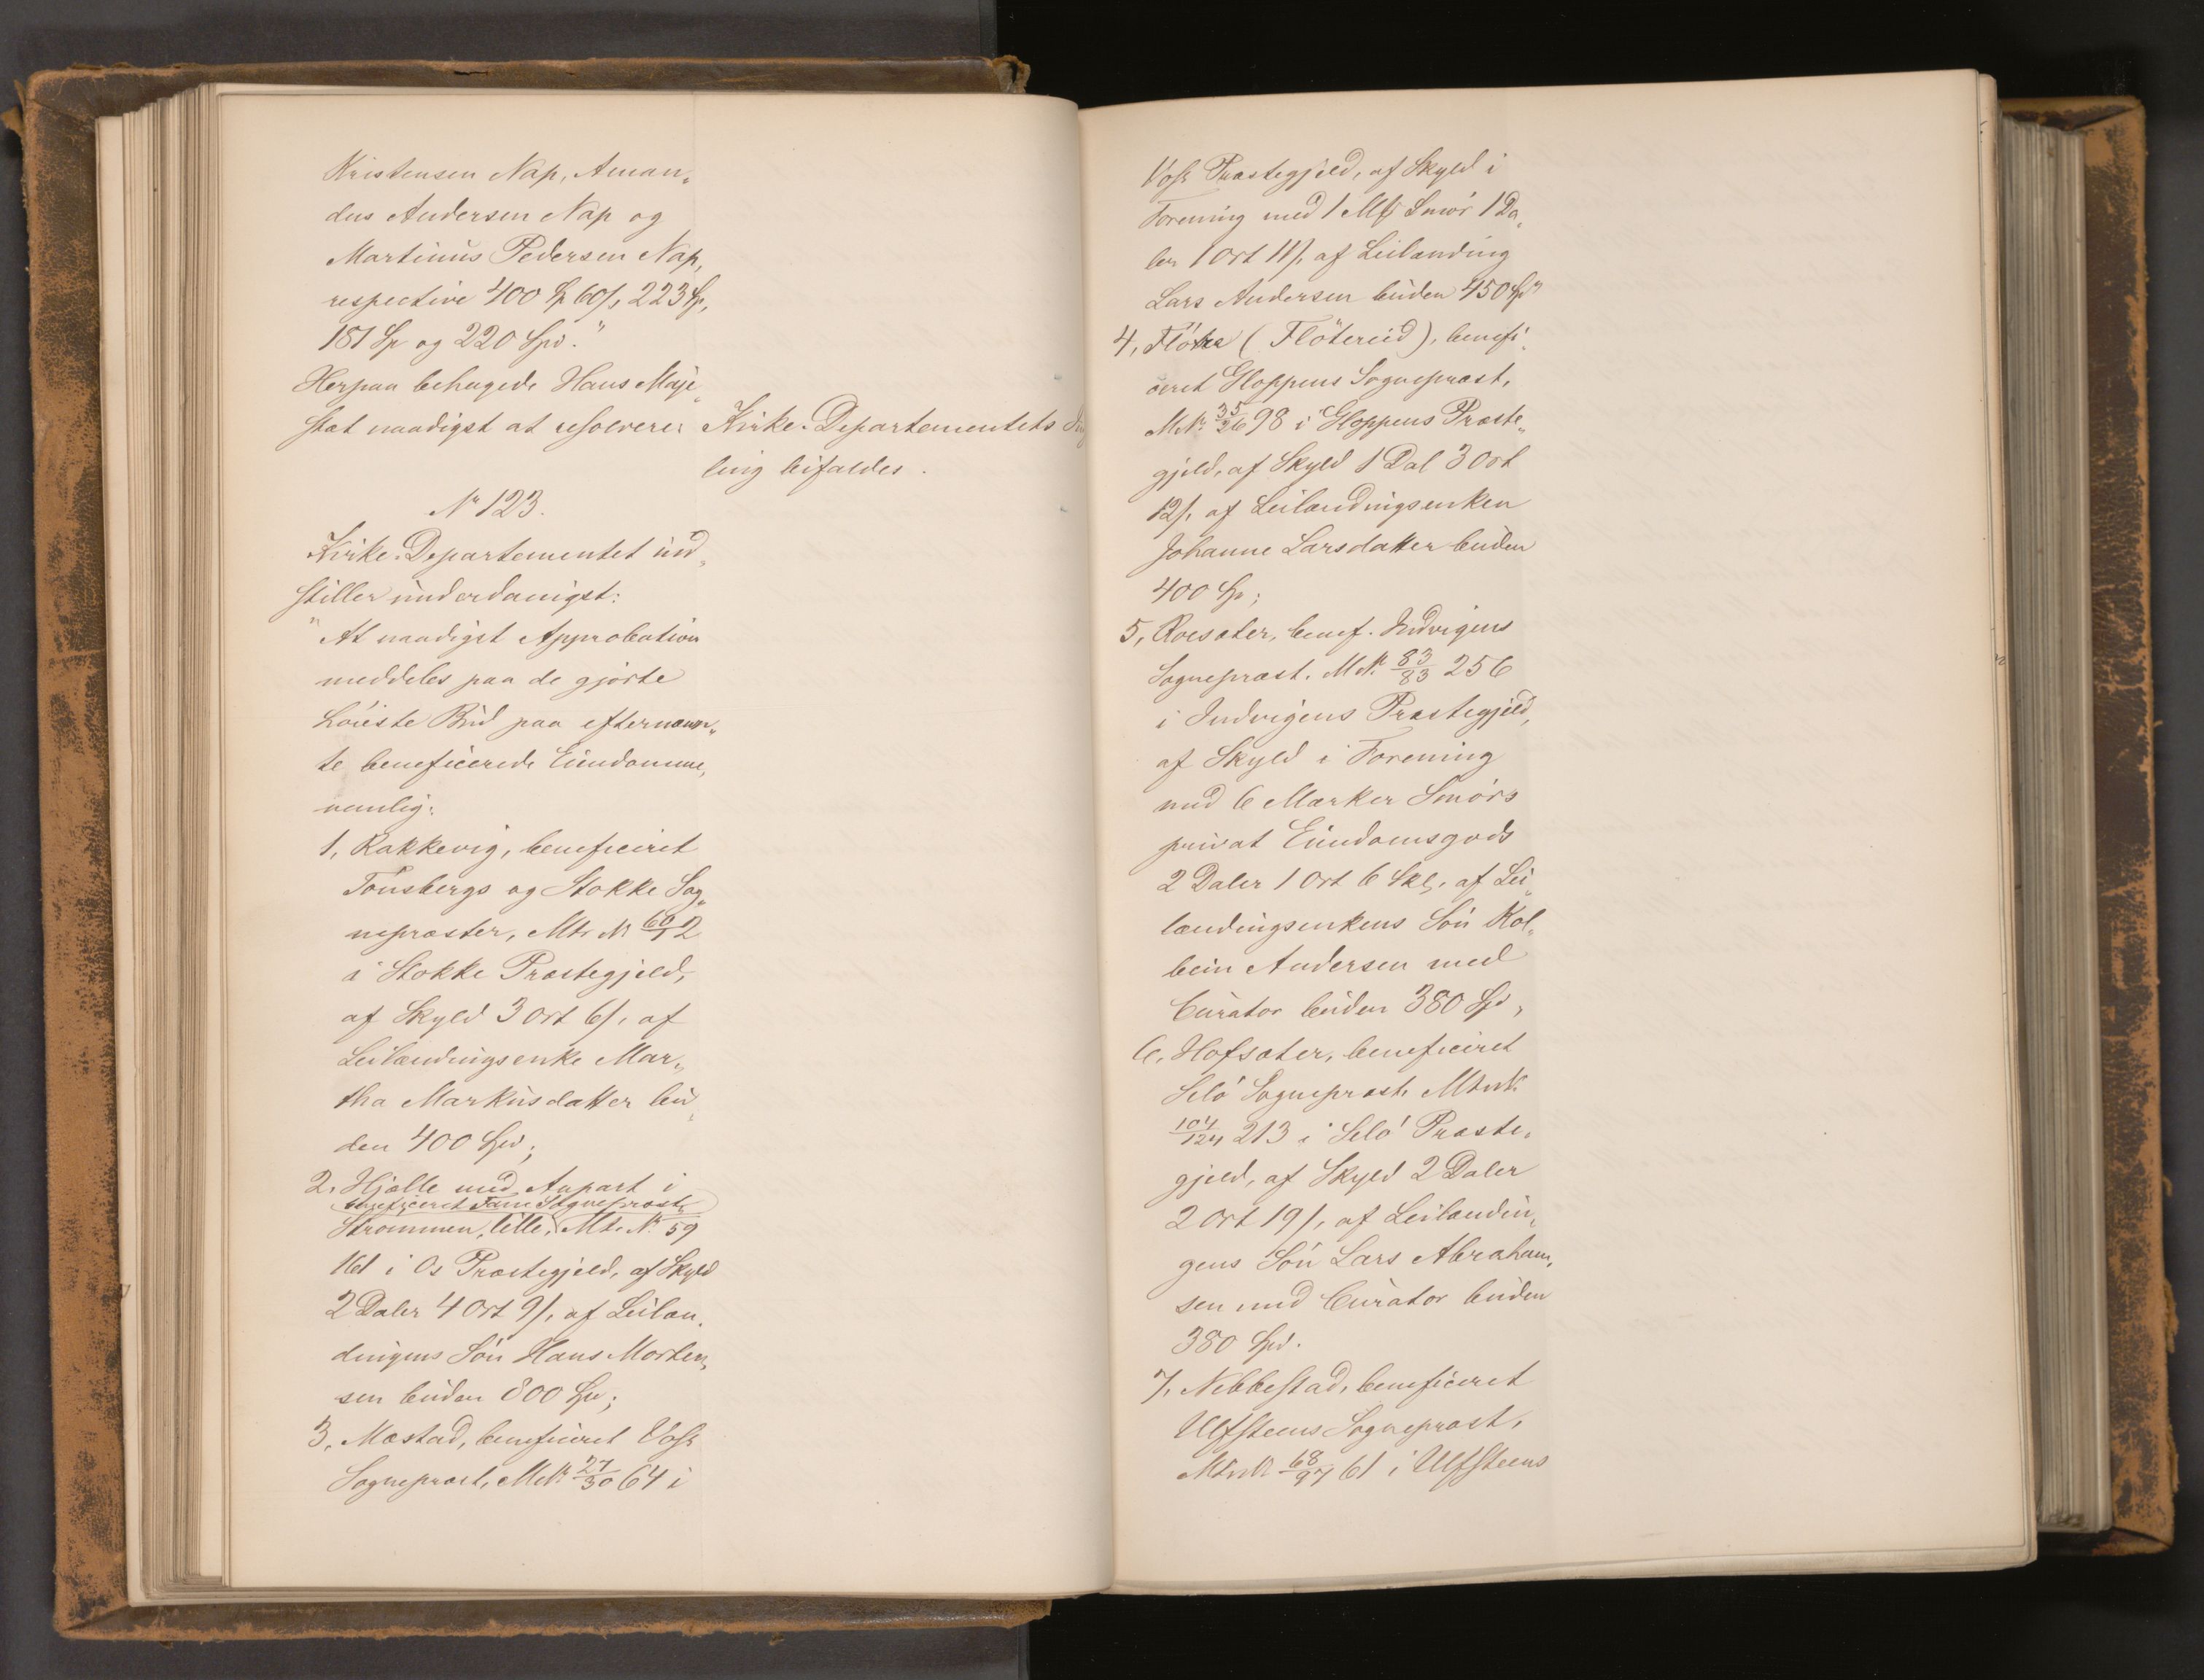 Kristensen Nap, Aman„
dus Andersen Nap og
Martinus Pedersen Nap,
respective 400 Sp 60 s, 223 Sp,
181 Sp og 220 Spd."
Herpaa behagede Hans Maje„
stæt naadigst at resolvere: Kirke-Departementets Ind
ling bifaldes.
Nr 123.
Kirke-Departementet ind„
stiller underdanigst:
"At naadigst Approbation
meddeles paa de gjorte
høieste Bud paa efternævn„
te beneficerede Eiendomme,
nemlig:
1, Rakkevig, beneficeret
Tønsbergs og Stokke Sog„
nepræster, Mtr Nr 60/1 2
i Stokke Præstegjeld,
af Skyld 3 Ort 6 s, af
Leilændingsenke Mar„
tha Markusdatter bu„
den 400 Spd;
2. Hjelle med Anpart i
beneficeret Fane Sognepræst,
Strømmen, lille, Mt. Nr. 59
161 i Os Præstegjeld, af Skyld
2 Daler 4 Ort 9 s, af Leilæn„
dingens Søn Hans Morten„
sen buden 800 Spd;
3, Mæstad, beneficeret Voss
Sognepræst, MtNr 27/30 64 i
Voss Præstegjeld, af Skyld i
Forening med 1 Mk Smør 1 Da„
ler 1 Ort 11 s, af Leilænding
Lars Andersen buden 450 Spd
4, Fløtre (Fløtereid), benefi„
ceret Gloppens Sognepræst,
MNr. 35/26 98 i Gloppens Præste„
gjeld, af Skyld 1 Dal 3 Ort
12 s, af Leilændingsenken
Johanne Larsdatter buden
400 Sp;
5, Roesæter, benef. Indvigens
Sognepræst. MNr. 83/83 256
i Indvigens Præstegjeld,
af Skyld i Forening
med 6 Marker Smørs
privat Eiendomsgods
2 Daler 1 Ort 6 Skl, af Lei„
lændingsenkens Søn Kol„
bein Andersen med
Curator buden 380 Spd,
6, Hofsæter, beneficeret
Selø Sognepræst, MtrNr.
104/124 213 i Selø Præste„
gjeld, af Skyld 2 Daler
2 Ort 19 s, af Leilændin„
gens Søn Lars Abraham„
sen med Curator buden
380 Spd.
7, Nebbestad, beneficeret
Ulfsteens Sognepræst,
MtrNr 68/97 61 i Ulfsteens